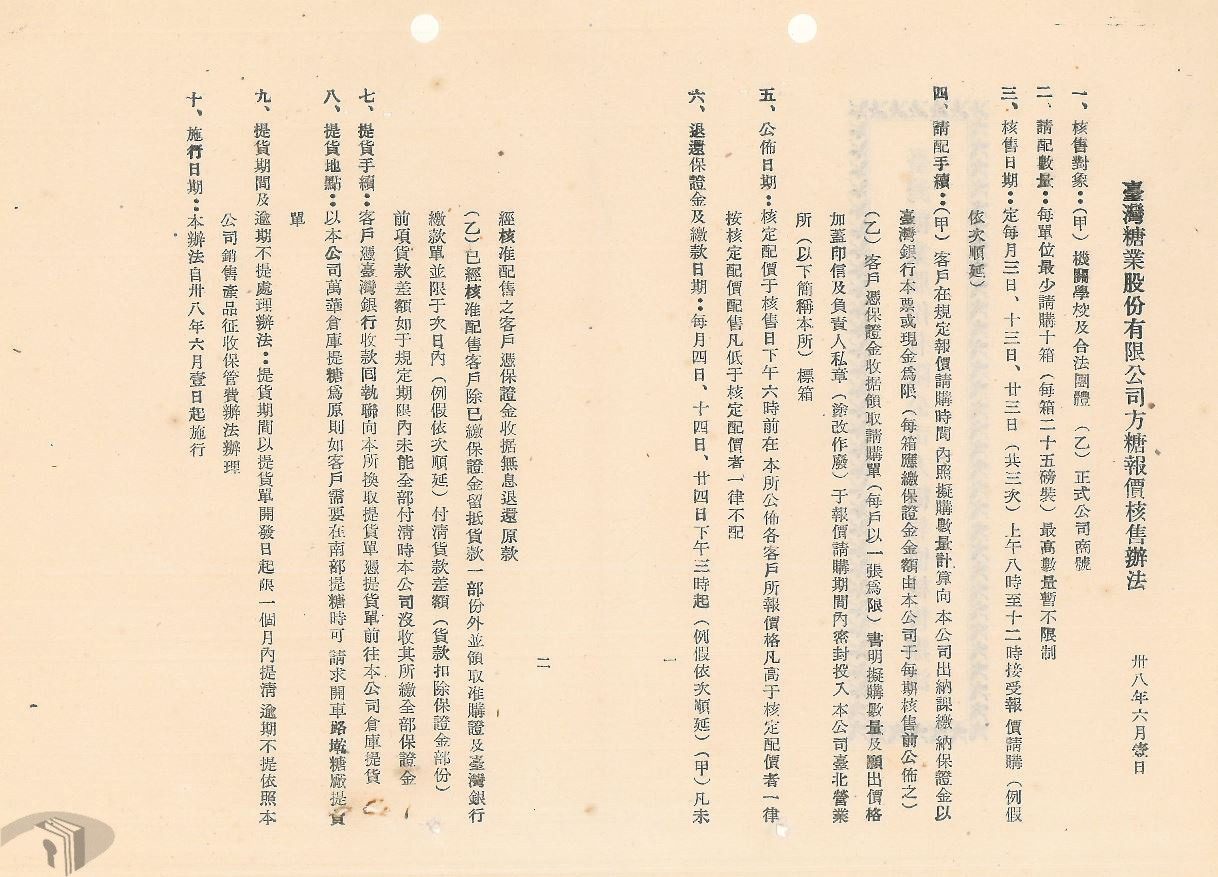 臺灣糖業股份有限公司方糖報價核售辦法 卅八年六月壹日
一、核售對象：(甲）機關學校及合法團體 （乙）正式公司商號
二、請配數量：每單位最少請購十箱（每箱二十五磅裝）最高數量暫不限制
三、核售日期：定每月三日、十三日、廿三日（共三次）上午八時至十二時接受報價請購（例假
依次順延）
四、請配手續：(甲）客戶在規定報價請購時間內照擬購數量計算向本公司出納課繳納保證金以
臺灣銀行本票或現金為限（每箱應繳保證金金額由本公司于每期核售前公佈之）
(乙）客戶憑保證金收据領取請購單（每戶以一張為限）書明擬購數量及願出價格
加蓋印信及負責人私章（塗改作廢）于報價請購期間內密封投入本公司臺北營業
所（以下簡稱本所）標箱
五、公佈日期：核定配價于核售日下午六時前在本所公佈各客戶所報價格凡高于核定配價者一律
按核定配價配售凡低于核定配價者一律不配
六、退還保證金及繳款日期：每月四日、十四日、廿四日下午三時起（例假依次順延）（甲）凡未
一
經核准配售之客戶憑保證金收据無息退還原款
(乙）已經核准配售客戶除已繳保證金留抵貨款一部份外並領取准購證及臺灣銀行
繳款單並限于次日內（例假依次順延）付清貨款差額（貨款扣除保證金部份）
前項貨款差額如于規定期限內未能全部付清時本公司沒收其所繳全部保證金
七、提貨手續：客戶憑臺灣銀行收款回執聯向本所換取提貨單憑提貨單前往本公司倉庫提貨
八、提貨地點：以本公司萬華倉庫提糖為原則如客戶需要在南部提糖時可請求開車路墘糖廠提貨
單
九、提貨期間及逾期不提處理辦法：提貨期間以提貨單開發日起限一個月內提清逾期不提依照本
公司銷售產品征收保管費辦法辦理
十、施行日期：本辦法自卅八年六月壹日起施行
二